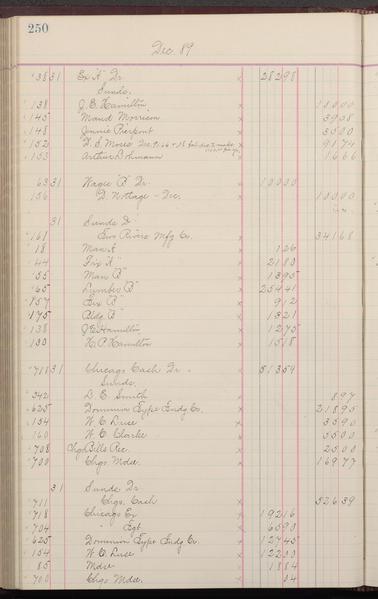 250
Dec. 89
38 31 Ex "A" Dr. 28298
Sunds.
138 J. E. Hamilton 10000
145 Maud Morrison 3908
148 Jennie Pierpont 3500
152 F. S. Moses Dec. 9174
153 Arthur Bohmann 1666
63 31 Wages "B" Dr. 10000
156 D. Nottage - Dec. 10000
31 Sunds Dr
161 Two Rivers Mfg Co. 34168
18 Man A 126
44 Fix "A" 2183
55 Man "B" 1395
65 Lumber "B" 25441
757 Ex "B" 912
175 Bldg "B" 1321
138 J E Hamilton 1275
130 H. P. Hamilton 1518
711 31 Chicago Cash Dr. 51354
Sunds.
542 L. E. Smith 897
625 Dominion Type Fndg Co. 21895
154 W. C. Luse 3590
160 W. C. Clarke 3500
708 Chgo Bills Rec. 2500
700 Chgo. Mdse. 16977
31 Sunds Dr
711 Chgo. Cash 52639
718 Chicago Ex 19216
704 " Eqt. 6590
625 Dominion Type Fndg Co. 12745
154 W. C. Luse 12200
85 Mdse 1884
700 Chgo. Mdse. 04